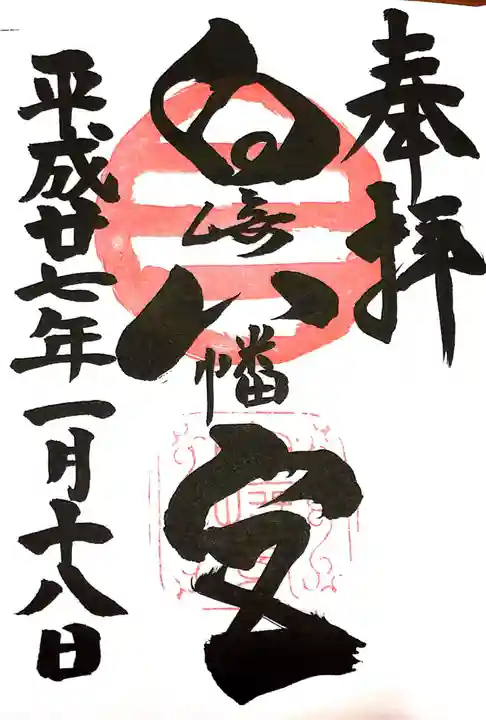 奉拝
白崎八幡宮
平成廿七年一月十八日